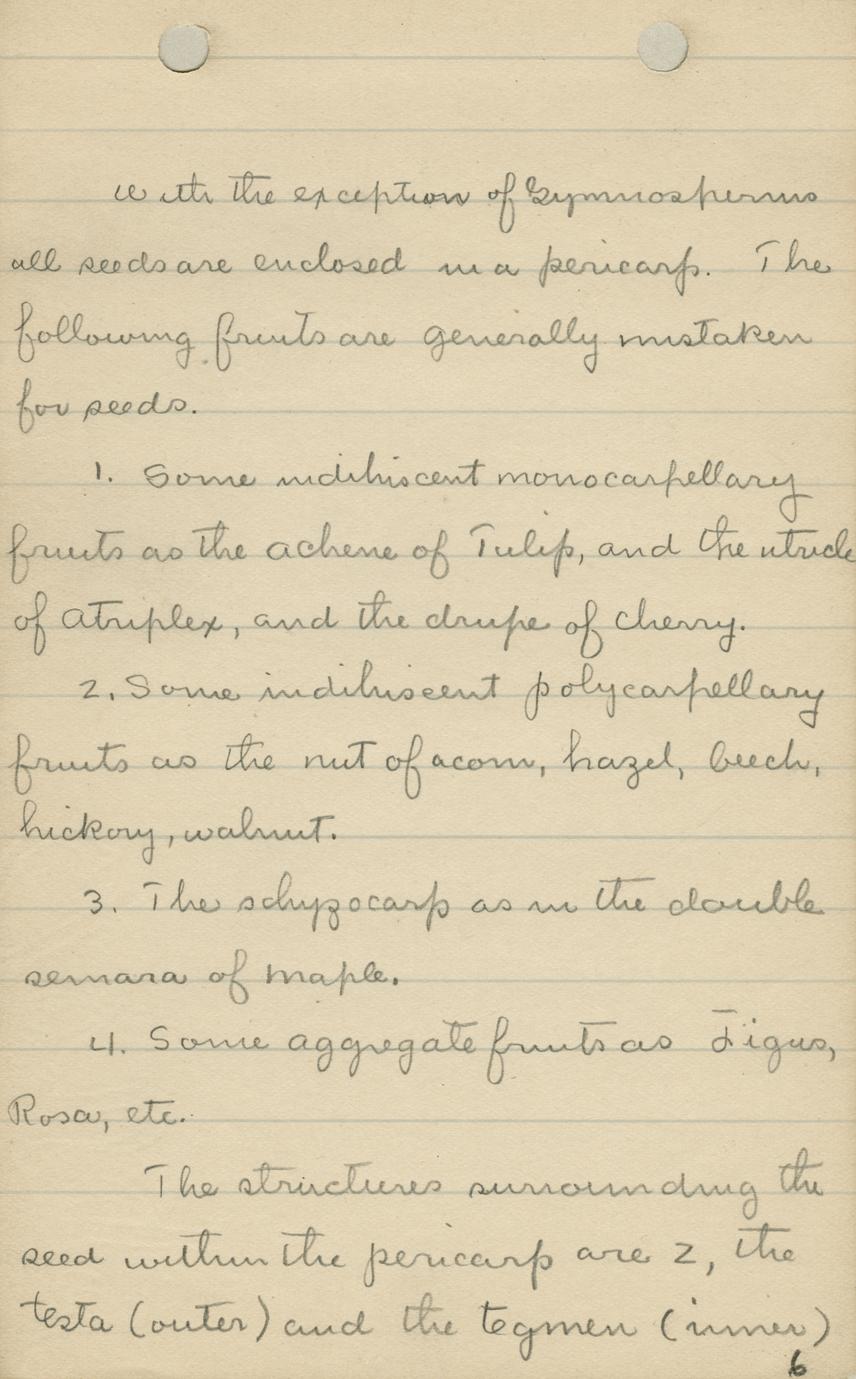 With the exception of Gymnosperms
all seeds are enclosed in a pericarp. The
following fruits are generally mistaken
for seeds.
1. Some indihiscent monocarpellary
fruits as the achene of Tulip, and the utricle
of Atriplex, and the drupe of cherry.
2. Some indihiscent polycarpellary
fruits as the nut of acorn, hazel, beech,
hickory, walnut.
3. The schyzocarp as in the double
semara of maple.
4. Some aggregate fruits as Figus,
Rosa, etc.
The structures surrounding the
seed within the pericarp are 2, the
testa (outer) and the tegmen (inner)
6